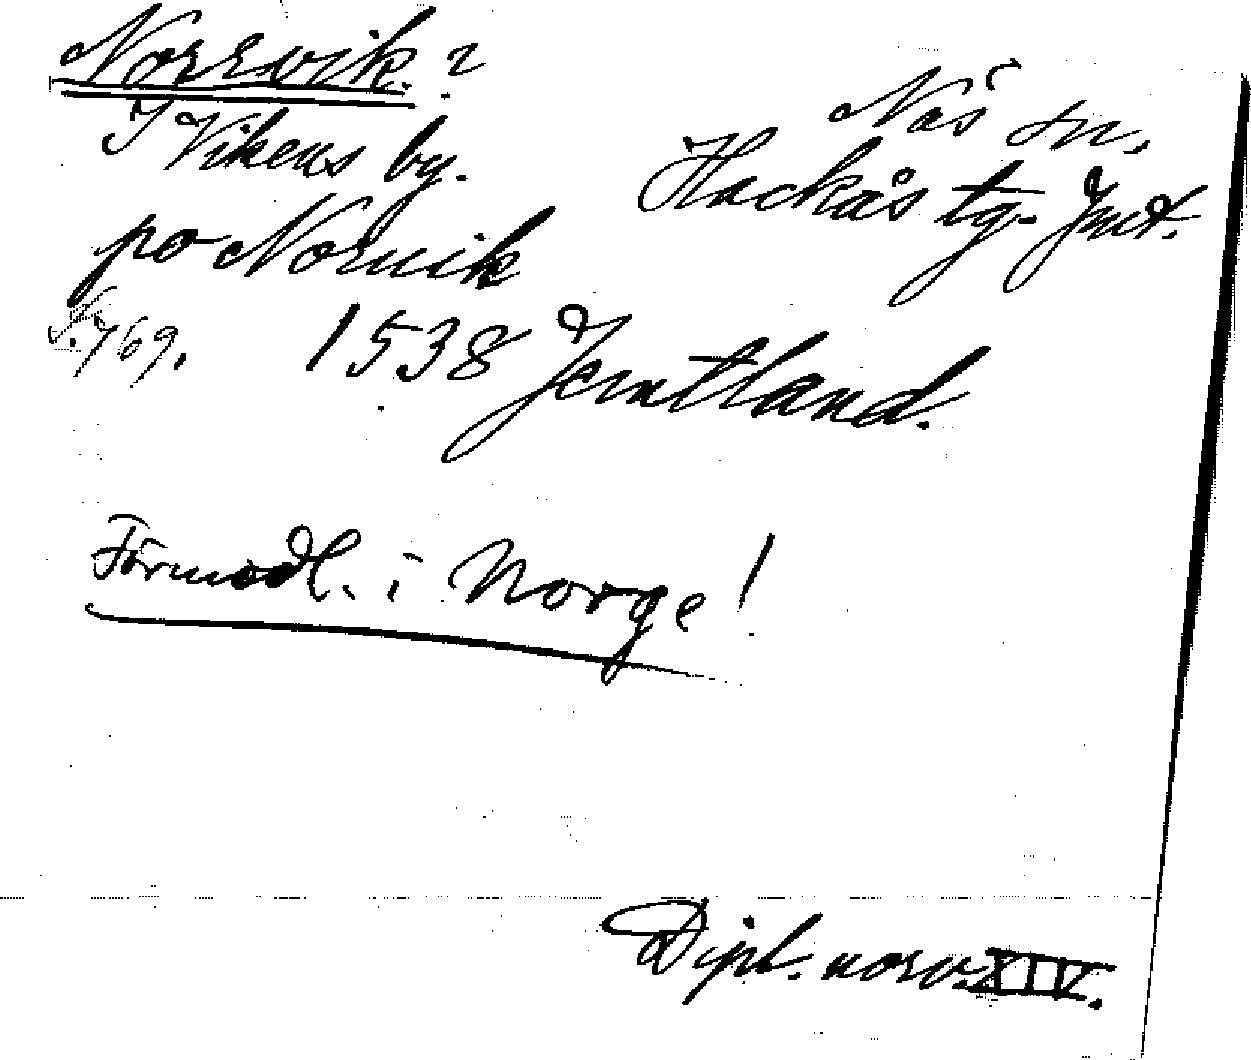 Norrvik.?
Näs sn,
I Vikens by.
Hackås tg. Jmt.
po Norvik
S. 769. 1538 Jemtland.
Förmodl. i Norge!
Dipl. norv. XIV.